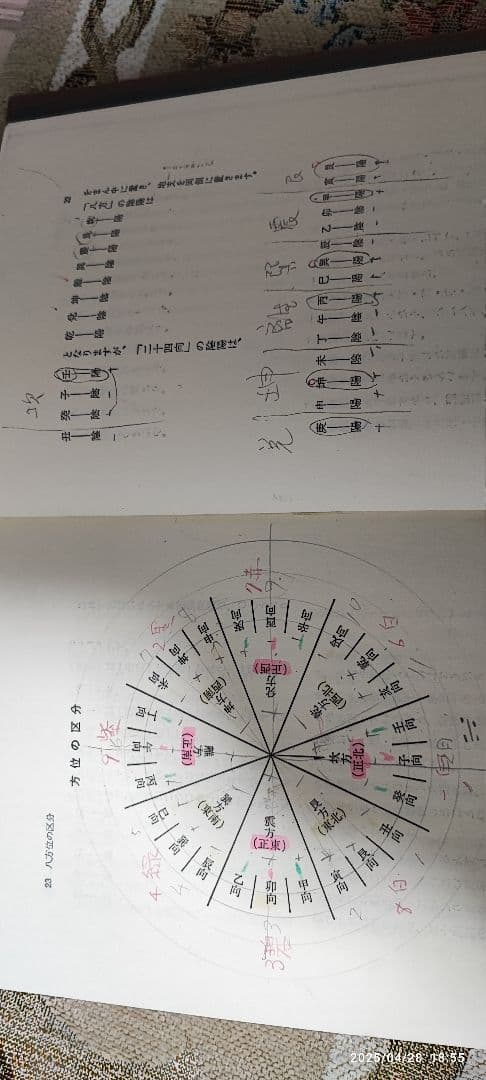 22
をまん中に置き、地支を両側に置きます。
「八方」の陰陽は
乾 陽
兌 陰
坤 陰
離 陰
巽 陰
震 陽
艮 陽
坎 陽
となりますが、「二十四向」の陰陽は、
壬 陽
子 陰
癸 陰
丑 陰
艮 陽
寅 陽
甲 陽
卯 陰
乙 陰
辰 陰
巽 陽
巳 陽
丙 陽
午 陰
丁 陰
未 陰
坤 陽
申 陽
庚 陽
坎
艮
震
巽
離
坤
兌
23 八方位の区分
方位の区分
離方(正南)
丙向
午向
丁向
坤方(西南)
未向
坤向
申向
兌方(正西)
庚向
酉向
辛向
乾方(西北)
戌向
乾向
亥向
坎方(正北)
壬向
子向
癸向
艮方(東北)
丑向
艮向
寅向
震方(正東)
甲向
卯向
乙向
巽方(東南)
辰向
巽向
巳向
9紫
2黒
7赤
6白
8白
3碧
4緑
2025/04/28 18:55